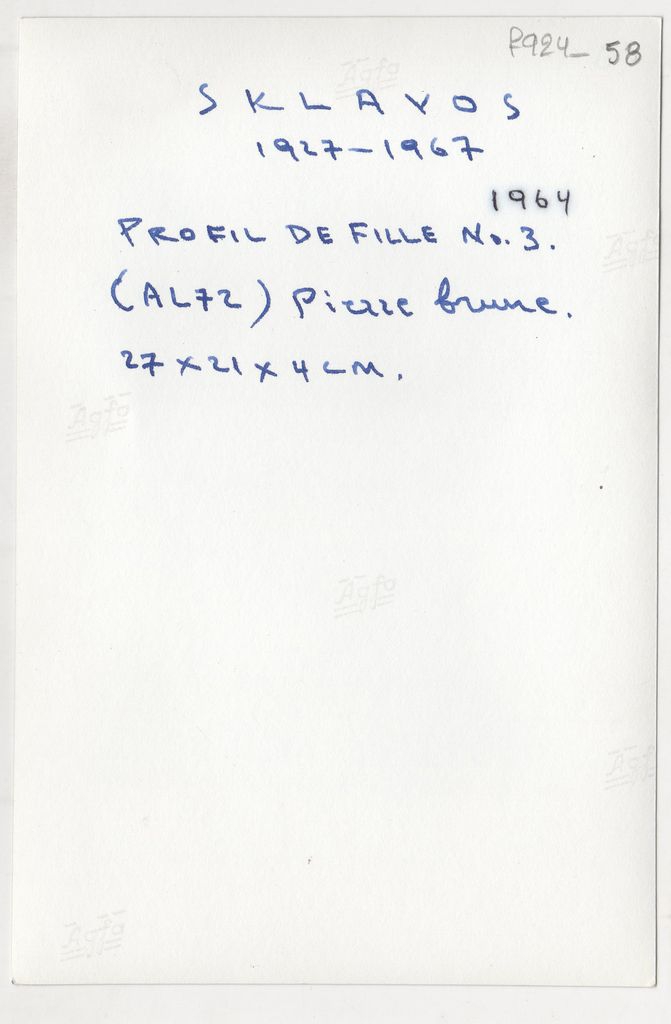 P924-58
SKLAVOS
1927-1967
1964
PROFIL DE FILLE No. 3.
(AL72) Pierre brune.
27 x 21 x 4 CM.
Agfa
Agfa
Agfa
Agfa
Agfa
Agfa